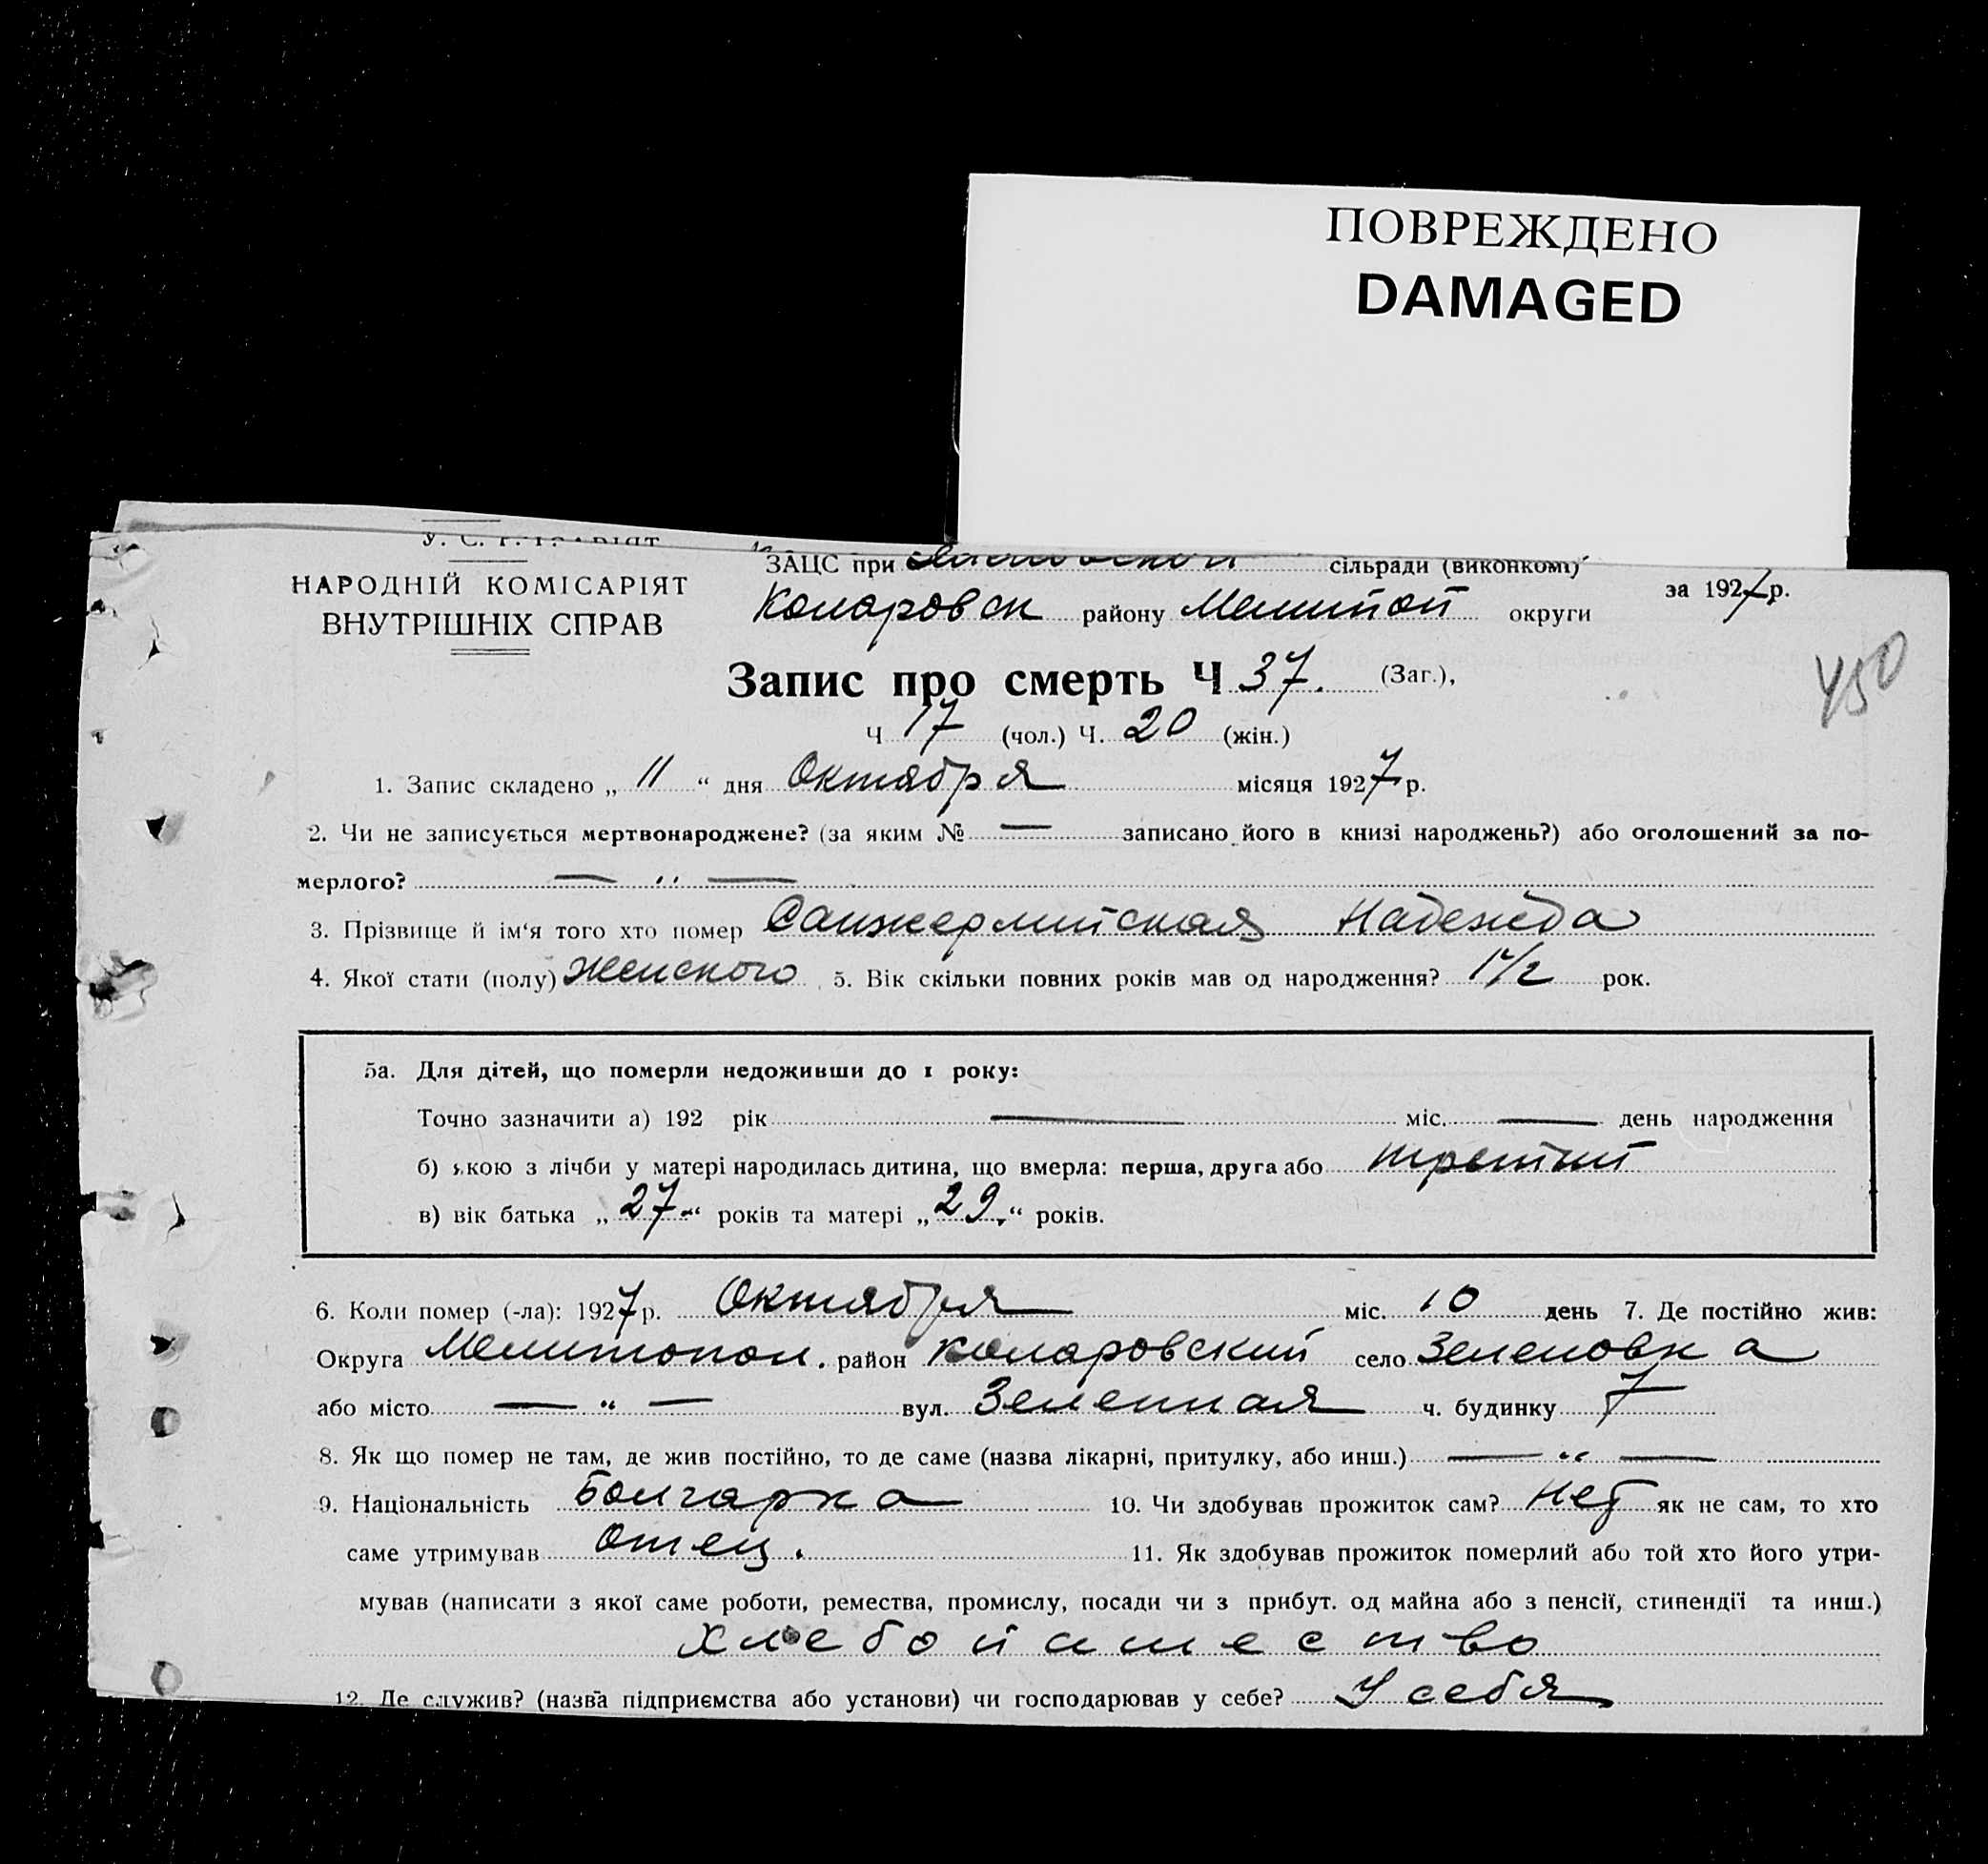 ПОВРЕЖДЕНО
DAMAGED
НАРОДНІЙ КОМІСАРІЯТ
ВНУТРІШНІХ СПРАВ
ЗАЦС при сільради (виконкомі)
Коларовск району Мелитоп округи
за 1927 р.
Запис про смерть Ч 37. (Заг.),
450
Ч 17 (чол.) Ч. 20 (жін.)
1. Запис складено „ 11 “ дня Октября місяця 1927 р.
2. Чи не записується мертвонароджене? (за яким № — записано його в книзі народжень?) або оголошений за по-
мерлого? — „ —
3. Прізвище й ім‘я того хто помер Надежда
4. Якої стати (полу) Женского 5. Вік скільки повних років мав од народження? 1 1/2 рок.
5а. Для дітей, що померли недоживши до 1 року:
Точно зазначити а) 192 рік — міс. — день народження
б) якою з лічби у матері народилась дитина, що вмерла: перша, друга або третий
в) вік батька „ 27 “ років та матері „ 29 “ років.
6. Коли помер (-ла): 1927 р. Октября міс. 10 день 7. Де постійно жив:
Округа Мелитопол. район Коларовский село Зеленовка
або місто — “ — вул. Зеленная ч. будинку 7
8. Як що помер не там, де жив постійно, то де саме (назва лікарні, притулку, або инш.) — “ —
9. Національність Болгарка 10. Чи здобував прожиток сам? Нет як не сам, то хто
саме утримував Отец. 11. Як здобував прожиток померлий або той хто його утри-
мував (написати з якої саме роботи, ремества, промислу, посади чи з прибут. од майна або з пенсії, стипендії та инш.)
12. Де служив? (назва підприємства або установи) чи господарював у себе? У себя